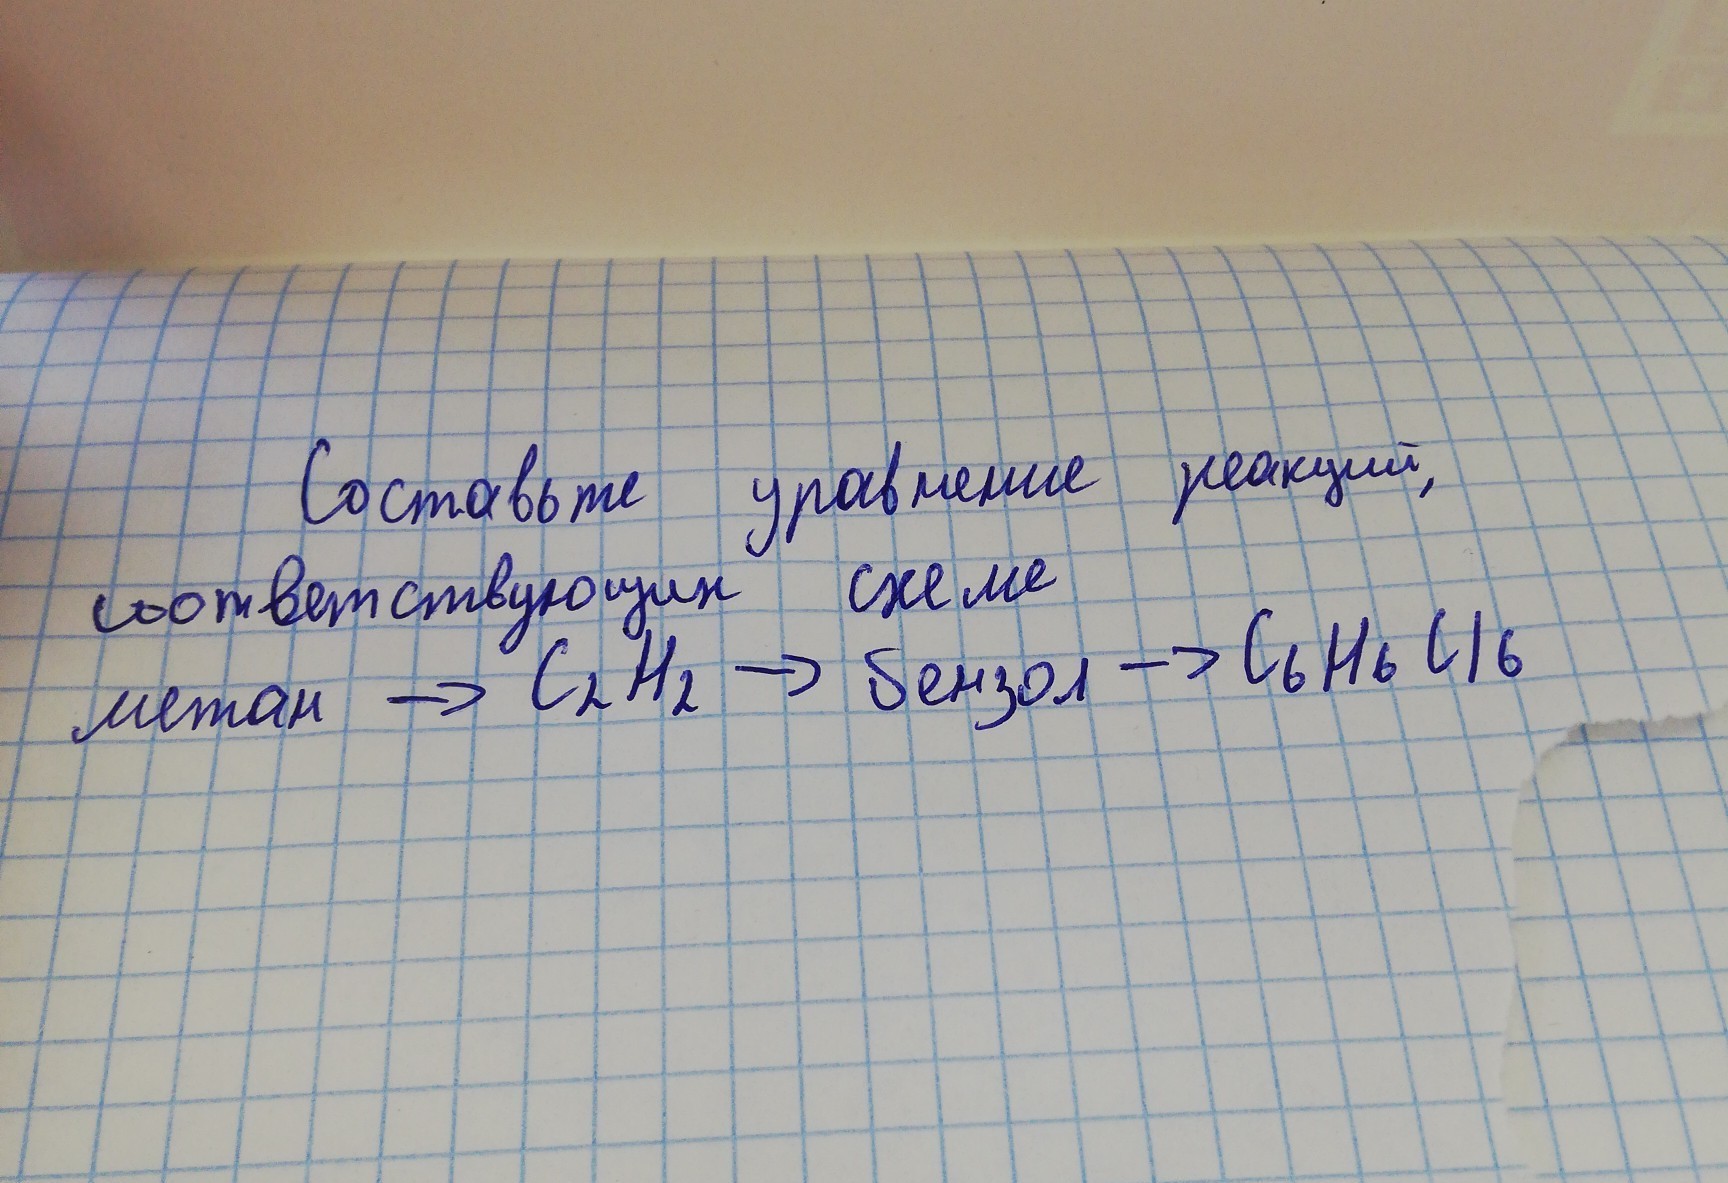 Составьте уравнение реакций,
соответствующих схеме
метан -> C₂H₂ -> бензол -> C₆H₆Cl₆